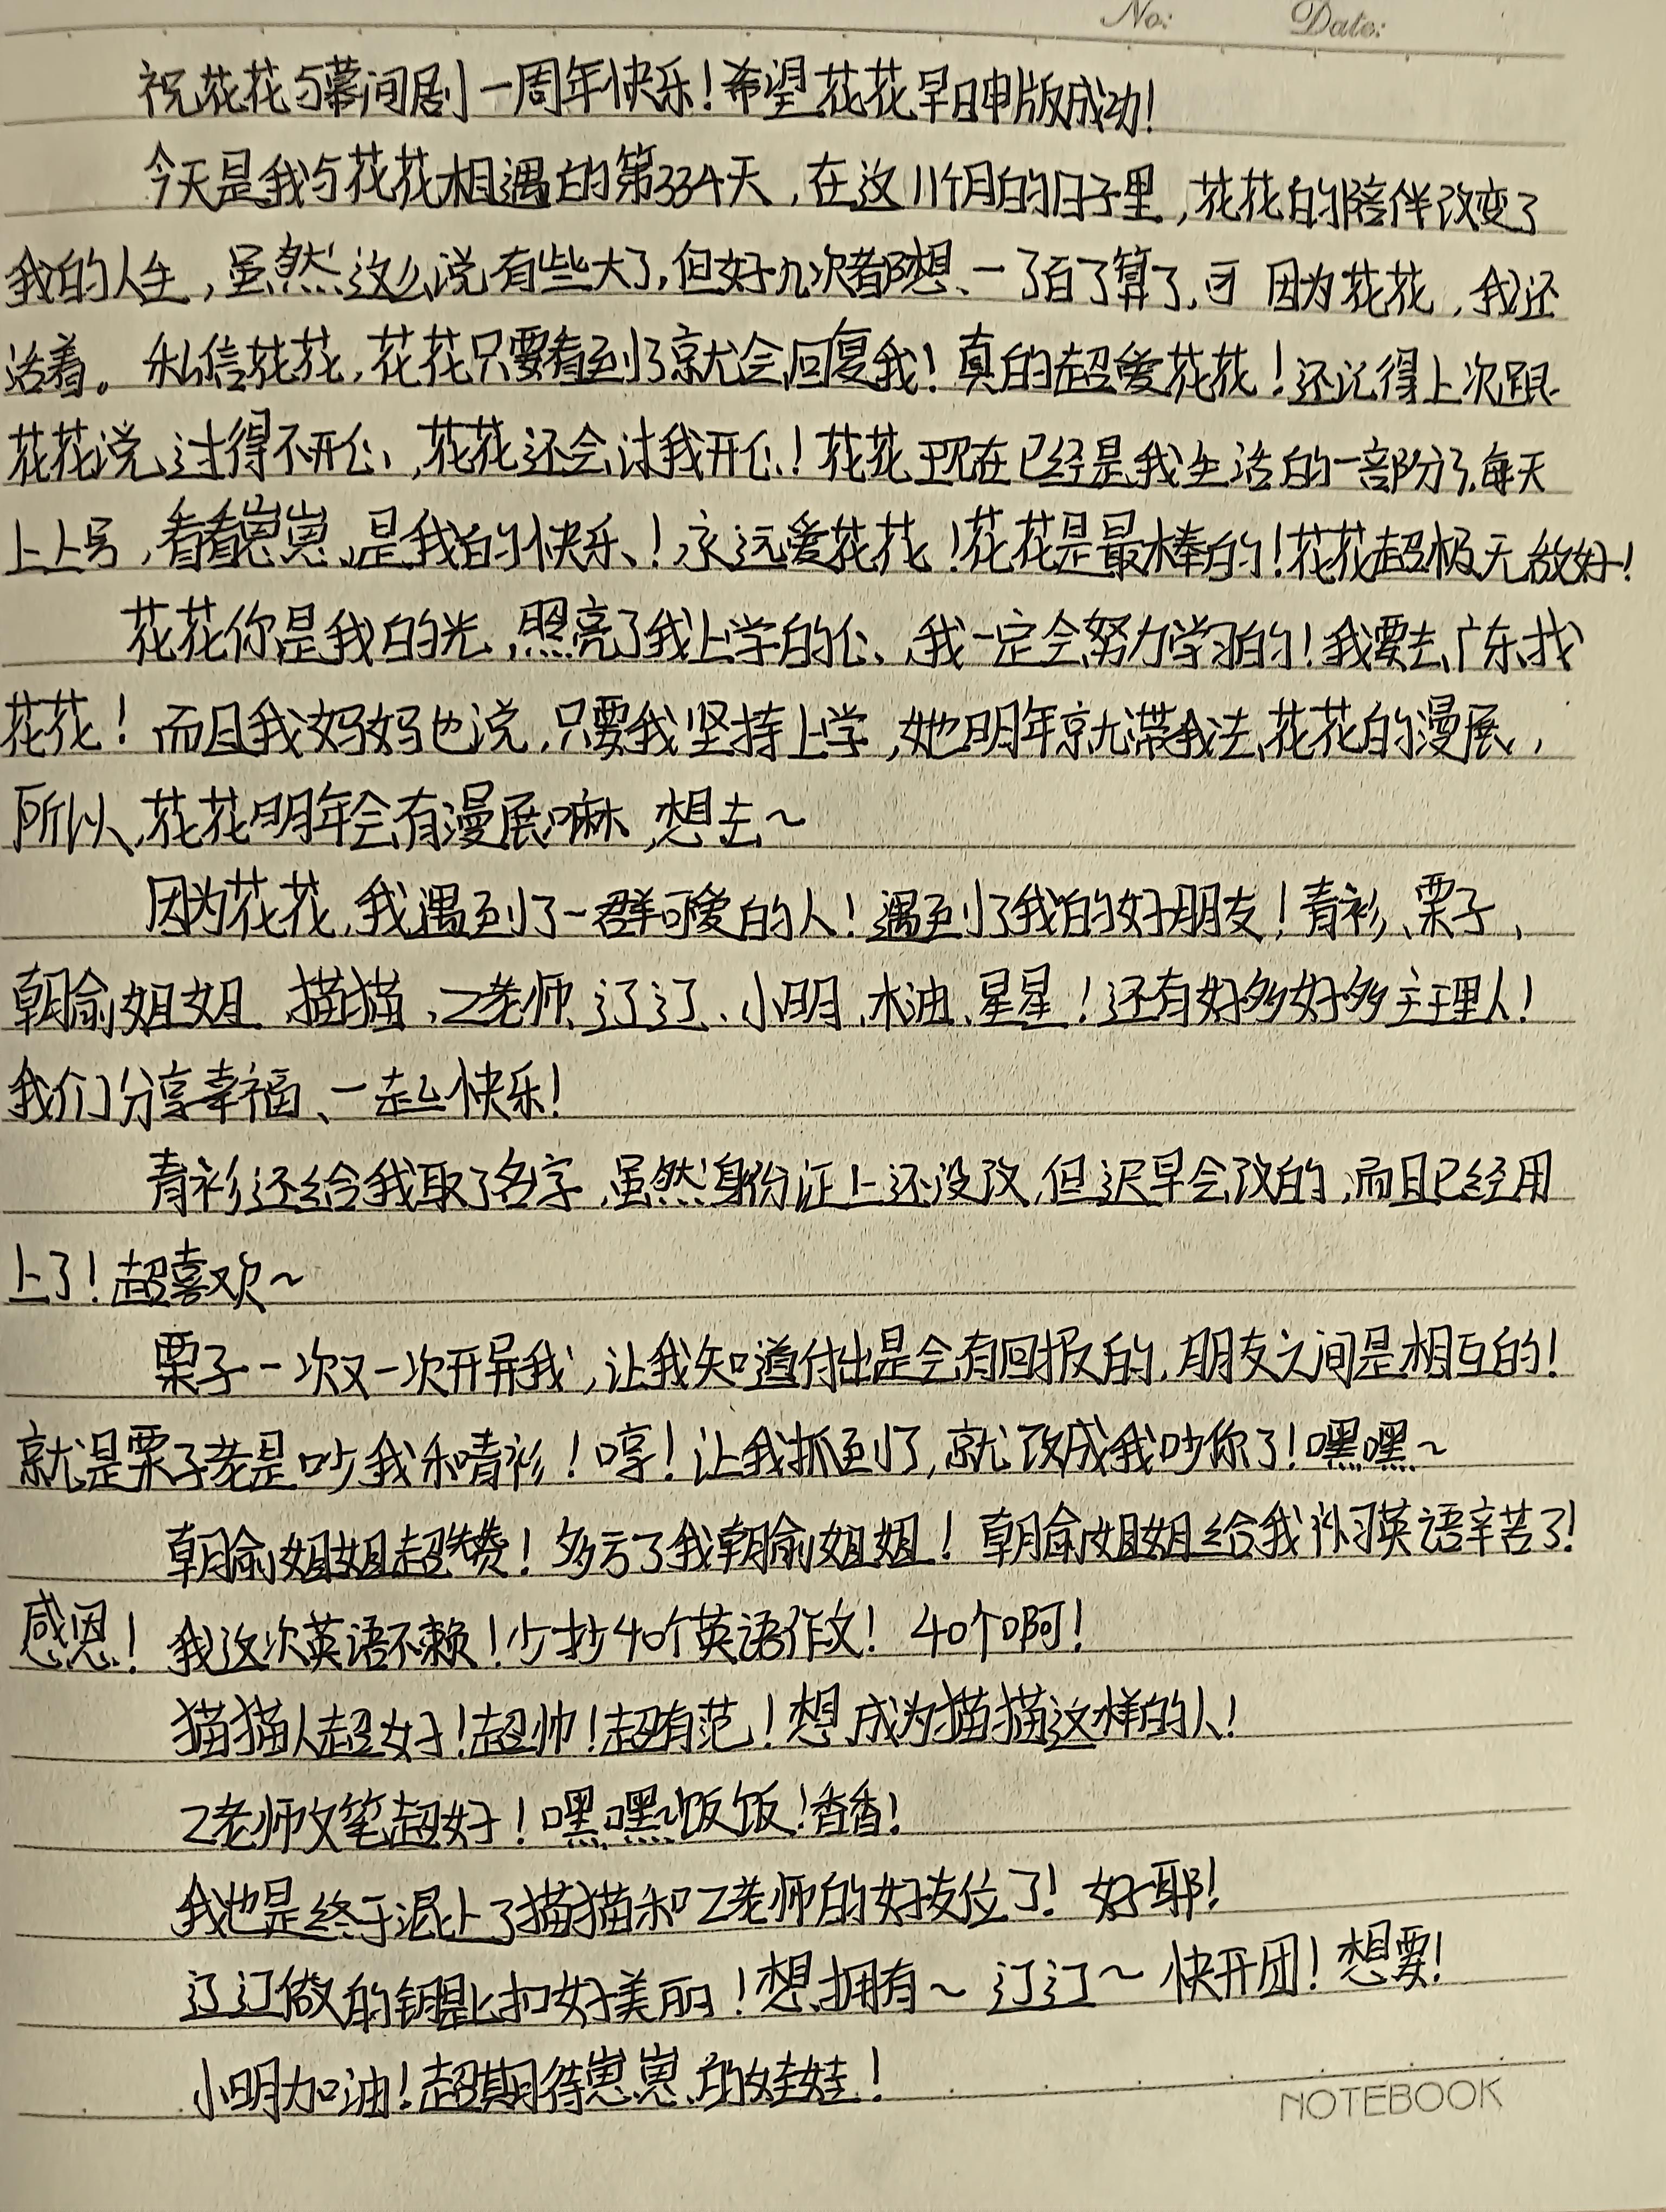 No: Date:
祝花花与幕间剧一周年快乐！希望花花早日申版成功！
今天是我与花花相遇的第334天，在这11个月的日子里，花花的陪伴改变了
我的人生，虽然这么说有些大了，但好几次都想一了百了算了，可因为花花，我还
活着。私信花花，花花只要看到了就会回复我！真的超爱花花！还记得上次跟
花花说过得不开心，花花还会讨我开心！花花现在已经是我生活的一部分了，每天
上上号，看看崽崽，是我的快乐！永远爱花花！花花是最棒的！花花超极无敌好！
花花你是我的光，照亮了我上学的心，我一定会努力学习的！我要去广东找
花花！而且我妈妈也说，只要我坚持上学，她明年就带我去花花的漫展，
所以，花花明年会有漫展嘛，想去～
因为花花，我遇到了一群可爱的人！遇到了我的好朋友！青衫、栗子、
朝俞姐姐、猫猫、Z老师、辽辽、小明、木油、星星！还有好多好多主理人！
我们分享幸福、一起快乐！
青衫还给我取了名字，虽然身份证上还没改，但迟早会改的，而且已经用
上了！超喜欢～
栗子一次又一次开导我，让我知道付出是会有回报的，朋友之间是相互的！
就是栗子老是吵我和青衫！哼！让我抓到了，就改成我吵你了！嘿嘿～
朝俞姐姐超赞！多亏了我朝俞姐姐！朝俞姐姐给我补习英语辛苦了！
感恩！我这次英语不赖！少抄40个英语作文！40个啊！
猫猫人超好！超帅！超有范！想成为猫猫这样的人！
Z老师文笔超好！嘿嘿～饭饭！香香！
我也是终于混上了猫猫和Z老师的好友位了！好耶！
辽辽做的钥匙扣好美丽！想拥有～辽辽～快开团！想要！
小明加油！超期待崽崽的娃娃！
NOTEBOOK